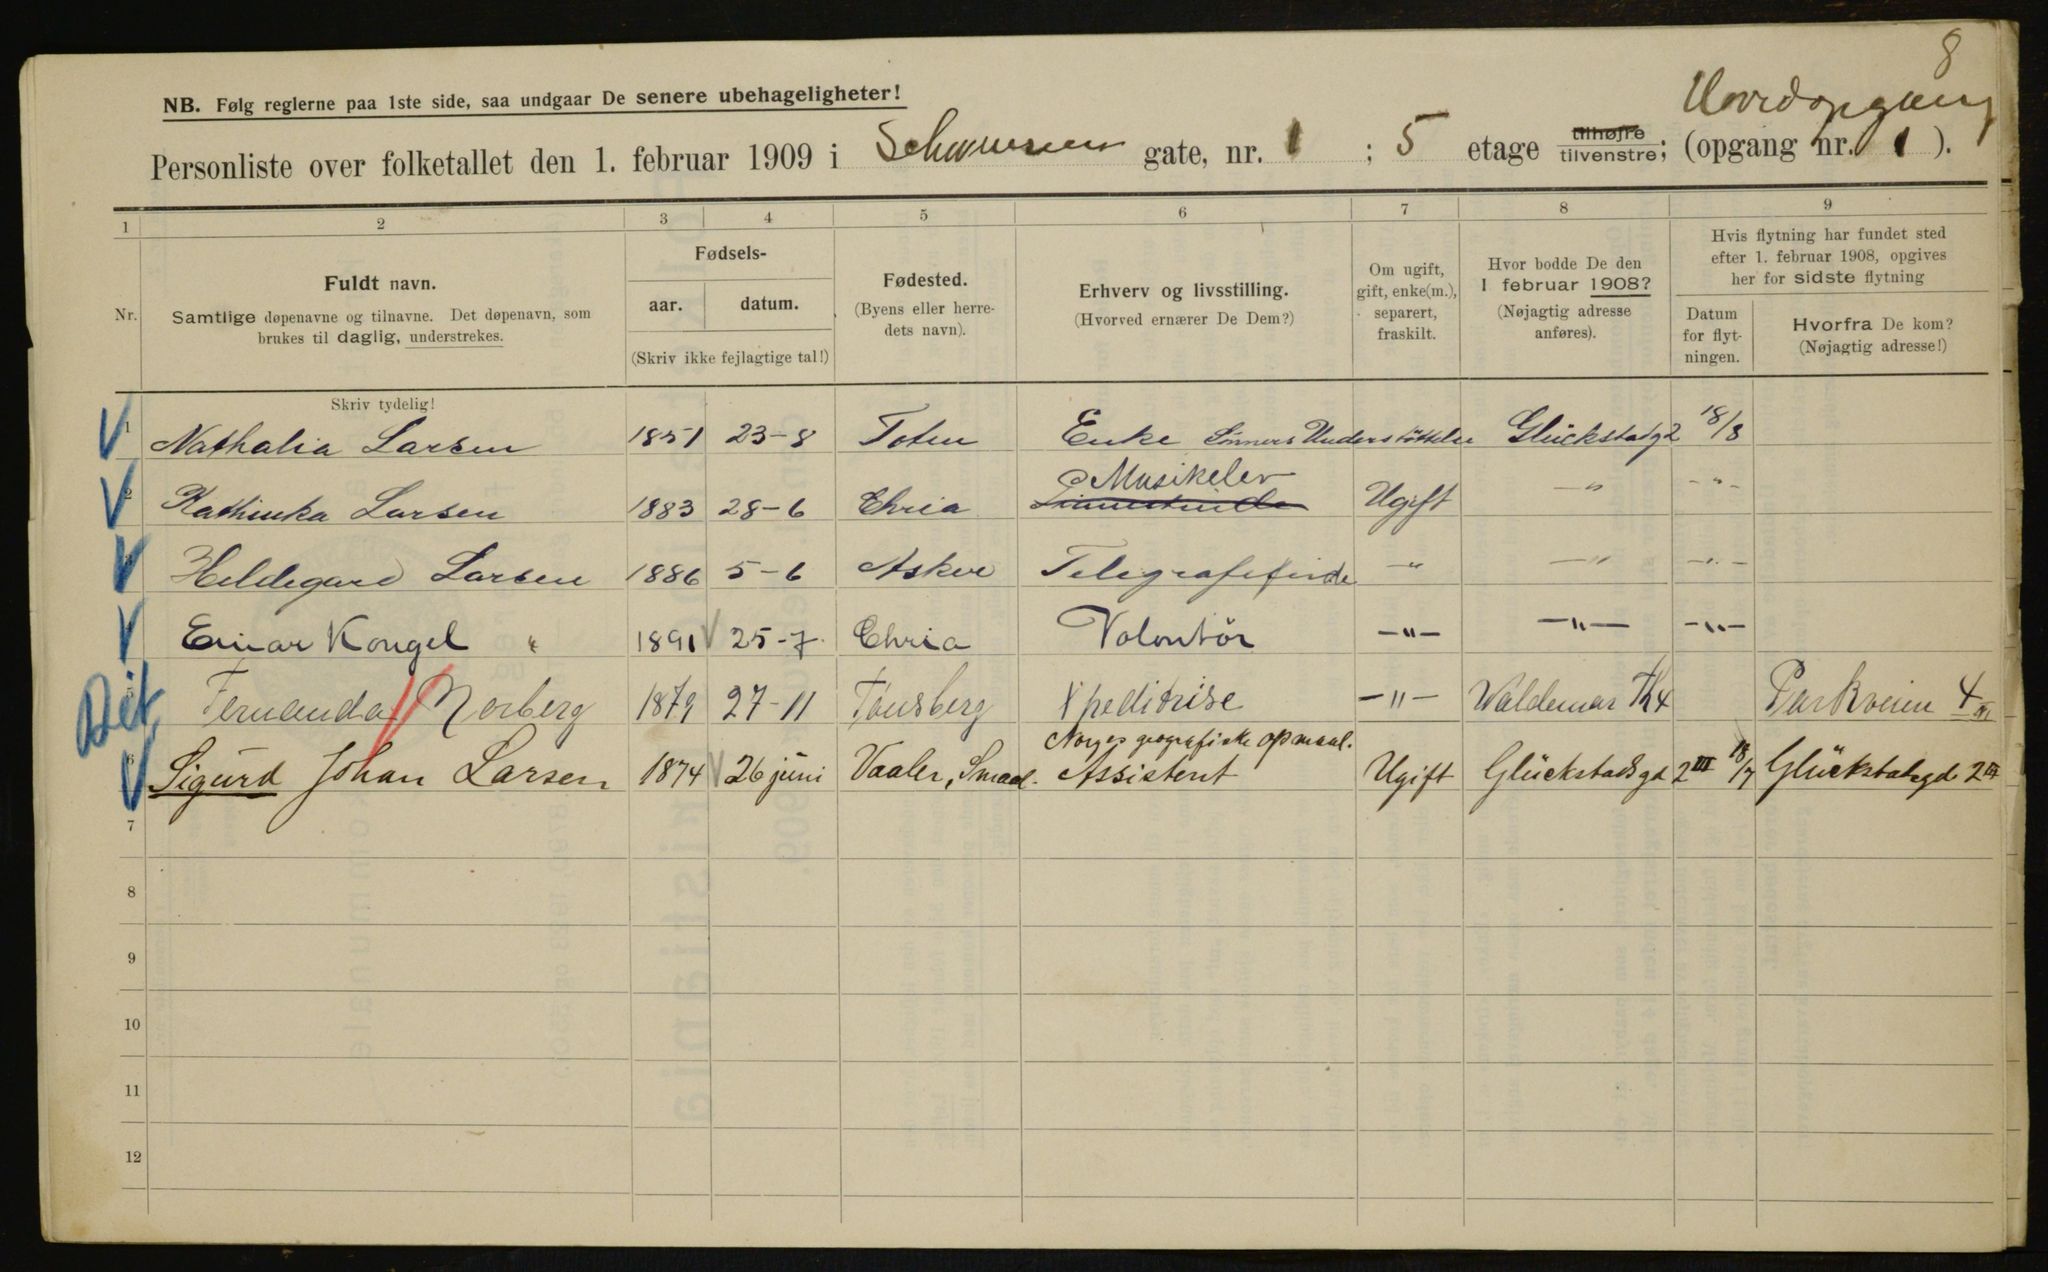 8
NB. Følg reglerne paa 1ste side, saa undgaar De senere ubehageligheter!
Hovedopgang
Personliste over folketallet den 1. februar 1909 i Schwensens gate, nr. 1 ; 5 etage tilhøjre tilvenstre; (opgang nr. 1 ).
1 2 3 4 5 6 7 8 9
Nr.
Fuldt navn.
Samtlige døpenavne og tilnavne. Det døpenavn, som
brukes til daglig, understrekes.
Fødsels-
aar. datum.
(Skriv ikke fejlagtige tal!)
Fødested.
(Byens eller herre-
dets navn).
Erhverv og livsstilling.
(Hvorved ernærer De Dem?)
Om ugift,
gift, enke(m.),
separert,
fraskilt.
Hvor bodde De den
1 februar 1908?
(Nøjagtig adresse
anføres).
Hvis flytning har fundet sted
efter 1. februar 1908, opgives
her for sidste flytning
Datum
for flyt-
ningen.
Hvorfra De kom?
(Nøjagtig adresse!)
Skriv tydelig!
1 Nathalia Larsen 1851 23-8 Toten Enke Sønners Understøttelse Glückstadgd 2 18/8
Musikelev
2 Kathinka Larsen 1883 28-6 Chria Ugift -"- -"-
3 Hildegard Larsen 1886 5-6 Asker Telegrafistinde -"- -"- -"-
Einar Kongel " 1891 25-7 Chria Volontør -"- -"- -"-
5 Fernanda Norberg 1879 27-11 Tønsberg Xpeditrise -"- Waldemar Th 4 Parkveien 4 III
Norges geografiske opmaal.
6 Sigurd Johan Larsen 1874 26 juni Vaaler, Smaal. Assistent Ugift Glückstadsgd 2 III 18/7 Glückstadsgd. 2 III
7
8
9
10
11
12